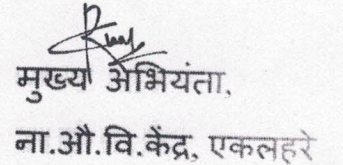 मुख्य अभियंता,
ना.औ.वि.केंद्र, एकलहरे